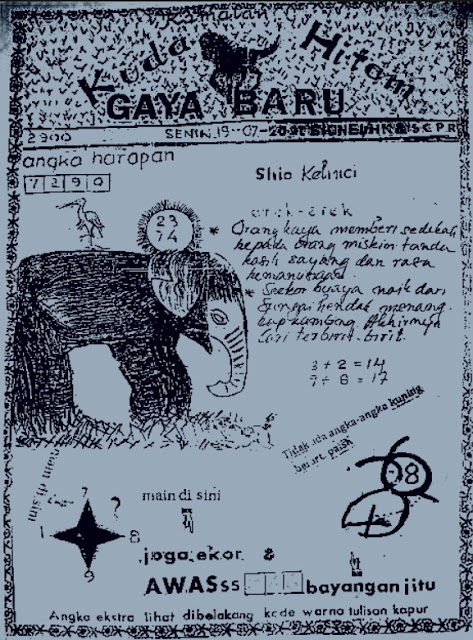 Ramalan
Kuda Hitam
GAYA BARU
2900 SENIN, 19-07-2021 SIGNEI HK & SGPR
angka harapan
7 2 9 0
Shio Kelinci
23
74
* Orang kaya memberi sedekah
kepada orang miskin tanda
kasih sayang dan rasa
kemanusiaan.
* Seekor buaya naik dari
Sungai hendak menang
Akhirnya
lari terbirit-birit.
3 + 2 = 14
9 + 8 = 17
Tidak ada angka-angka kuning
berarti palsu
08
main di sini
7
?
1
8
9
main di sini
joga ekor &
AWASss bayangan jitu
Angka ekstra lihat dibelakang kode warna tulisan kapur